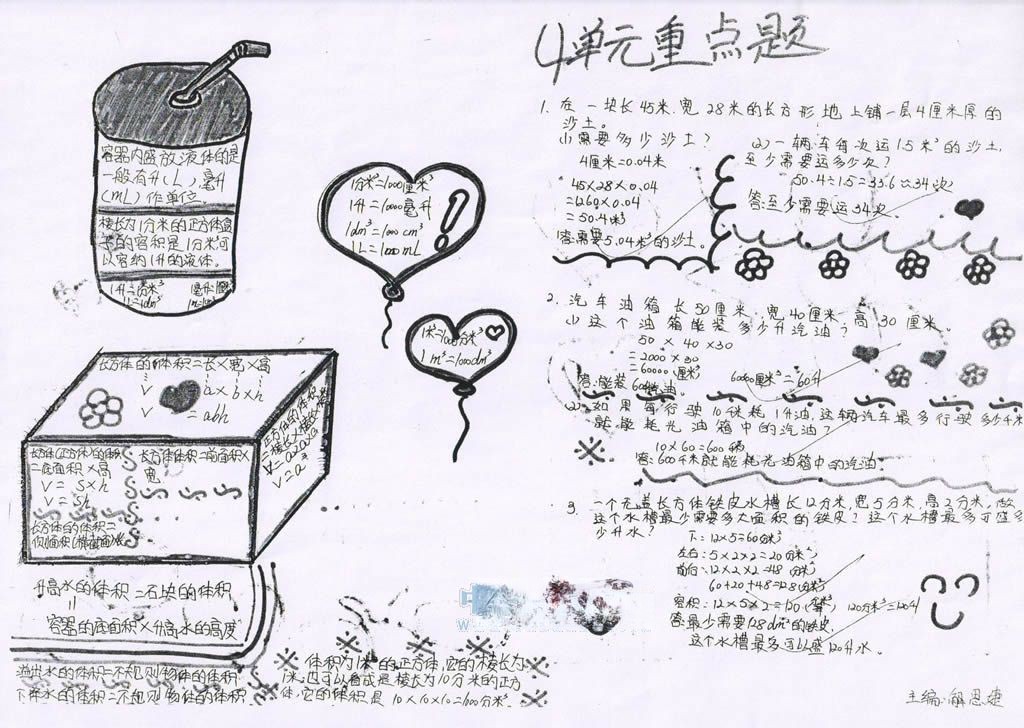 4单元重点题
容器内盛放液体的是
一般有升(L),毫升
(mL)作单位.
棱长为1分米的正方体盒
子的容积是1分米³可
以容纳1升的液体。
1升=1分米³
1L=1dm³
1分米³=1000厘米³
1升=1000毫升
1dm³=1000cm³
1L=1000mL
1米³=1000分米³
1m³=1000dm³
长方体的体积=长×宽×高
V a×b×h
V =abh
正方体的体积
=棱长×棱长×棱长
V=a×a×a
V=a³
长方体(正方体)的体积
=底面积×高
V=S×h
V=Sh
长方体的体积=
侧面积(横截面)×长
升高水的体积=石块的体积
容器的底面积×升高水的高度
溢出水的体积=不规则物体的体积
下降水的体积=不规则物体的体积
体积为1米³的正方体,它的棱长为
1米,也可以看成是棱长为10分米的正方
体,它的体积是10×10×10=1000分米³
1.在一块长45米,宽28米的长方形地上铺一层4厘米厚的
沙土。
(1)需要多少沙土?
4厘米=0.04米
45×28×0.04
=1260×0.04
=50.4米³
答:需要5.04米³的沙土。
(2)一辆车每次运1.5米³的沙土,
至少需要运多少次?
50.4÷1.5=33.6≈34次
答:至少需要运34次.
2.汽车油箱长50厘米,宽40厘米,高30厘米。
(1)这个油箱能装多少升汽油?
50×40×30
=2000×30
=60000(厘米³)
60000厘米³=60升
答:能装60升汽油.
(2)如果每行驶10千米耗1升油,这辆汽车最多行驶多少千米
就能耗光油箱中的汽油?
10×60=600千米
答:600千米就能耗光油箱中的汽油.
3.一个无盖长方体铁皮水槽长12分米,宽5分米,高2分米,做
这个水槽最少需要多大面积的铁皮?这个水槽最多可盛多
少升水?
下:12×5=60分米²
左右:5×2×2=20(分米²)
前后:12×2×2=48(分米²)
60+20+48=128(分米²)
容积:12×5×2=120(分米³) 120分米³=120升
答:最少需要128dm²的铁皮,
这个水槽最多可以盛120升水.
主编:解恩婕